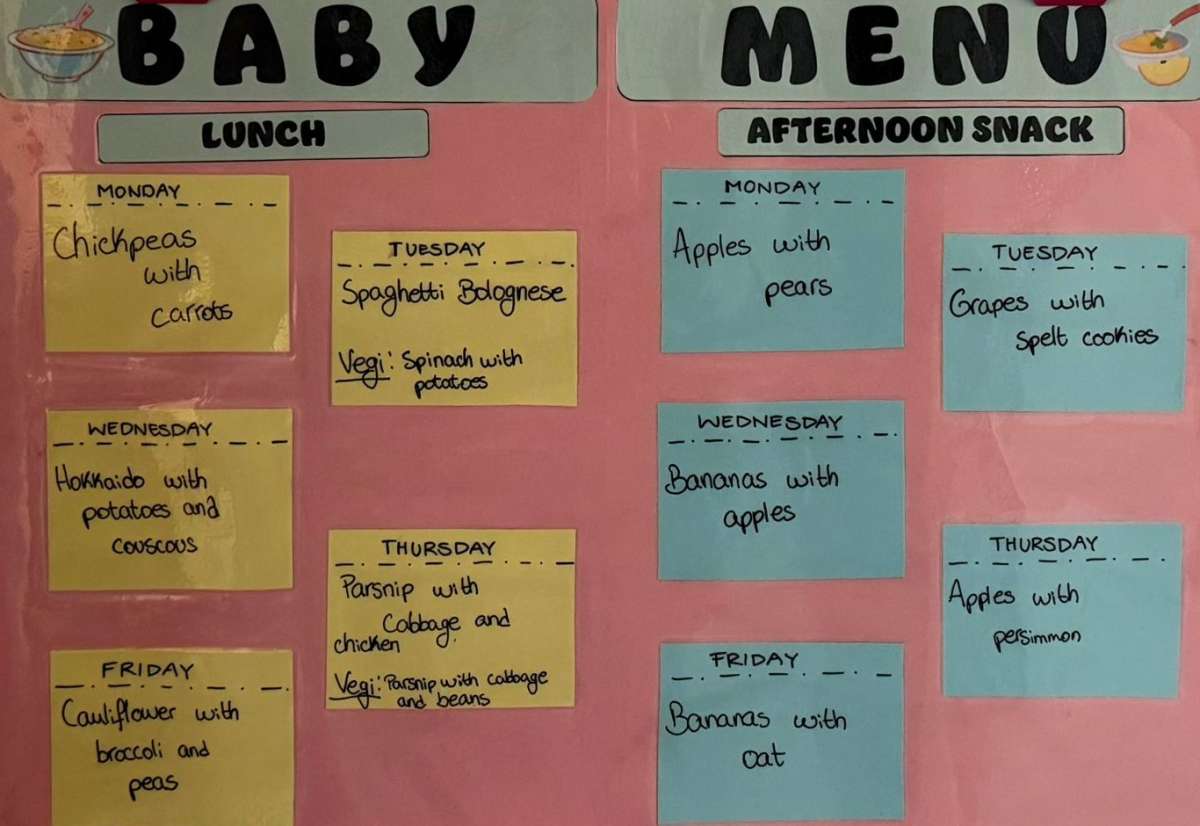 BABY MENU
LUNCH
MONDAY
Chickpeas
with
carrots
TUESDAY
Spaghetti Bolognese
Vegi: Spinach with
potatoes
WEDNESDAY
Hokkaido with
potatoes and
couscous
THURSDAY
Parsnip with
Cabbage and
chicken
Vegi: Parsnip with cabbage
and beans
FRIDAY
Cauliflower with
broccoli and
peas
AFTERNOON SNACK
MONDAY
Apples with
pears
TUESDAY
Grapes with
spelt cookies
WEDNESDAY
Bananas with
apples
THURSDAY
Apples with
persimmon
FRIDAY
Bananas with
oat